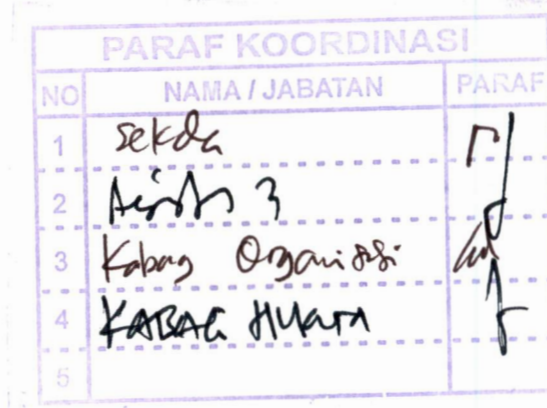 PARAF KOORDINASI
NO NAMA / JABATAN PARAF
1 Sekda
2 Asisten 3
3 Kabag Organisasi
4 KABAG HUKUM
5